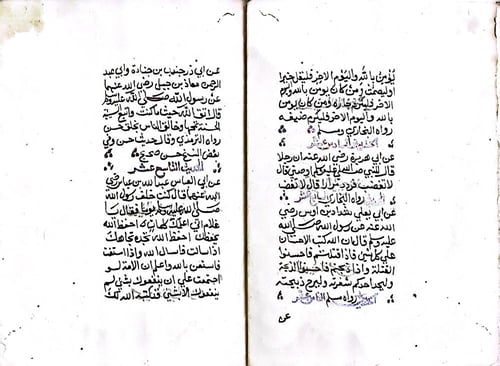 يؤمن بالله واليوم الاخر فليقل خيرا
اوليصمت ومن كان يومن بالله واليوم
الاخر فليكرم جاره ومن كان يومن
بالله واليوم الاخر فليكرم ضيفه
رواه البخاري ومسلم
الحديث السادس عشر
عن ابي هريرة رضي الله عنه ان رجلا
قال للنبي صلى الله عليه وسلم اوصني قال
لا تغضب فردد مرارا قال لا تغضب
رواه البخاري
عن ابي يعلى شداد بن اوس رضي
الله عنه عن رسول الله صلى الله
عليه وسلم قال ان الله كتب الاحسان
على كل شئ فاذا قتلتم فاحسنوا
القتلة واذا ذبحتم فاحسنوا الذبحة
وليحد احدكم شفرته وليرح ذبيحته
رواه مسلم الثامن عشر
عن
عن ابي ذر جندب بن جنادة وابي عبد
الرحمن معاذ بن جبل رضي الله عنهما
عن رسول الله صلى الله عليه وسلم
قال اتق الله حيث ما كنت واتبع السيئة
الحسنة تمحها وخالق الناس بخلق حسن
رواه الترمذي وقال حديث حسن وفي
بعض النسخ حسن صحيح
الحديث التاسع عشر
عن ابي العباس عبد الله بن عباس رضي
الله عنهما قال كنت خلف رسول الله
صلى الله عليه وسلم يوما فقال يا
غلام اني اعلمك كلمات احفظ الله
يحفظك احفظ الله تجده تجاهك
اذا سالت فاسال الله واذا استعنت
فاستعن بالله واعلم ان الامة لو
اجتمعت على ان ينفعوك بشئ لم
ينفعوك الا بشئ قد كتبه الله لك